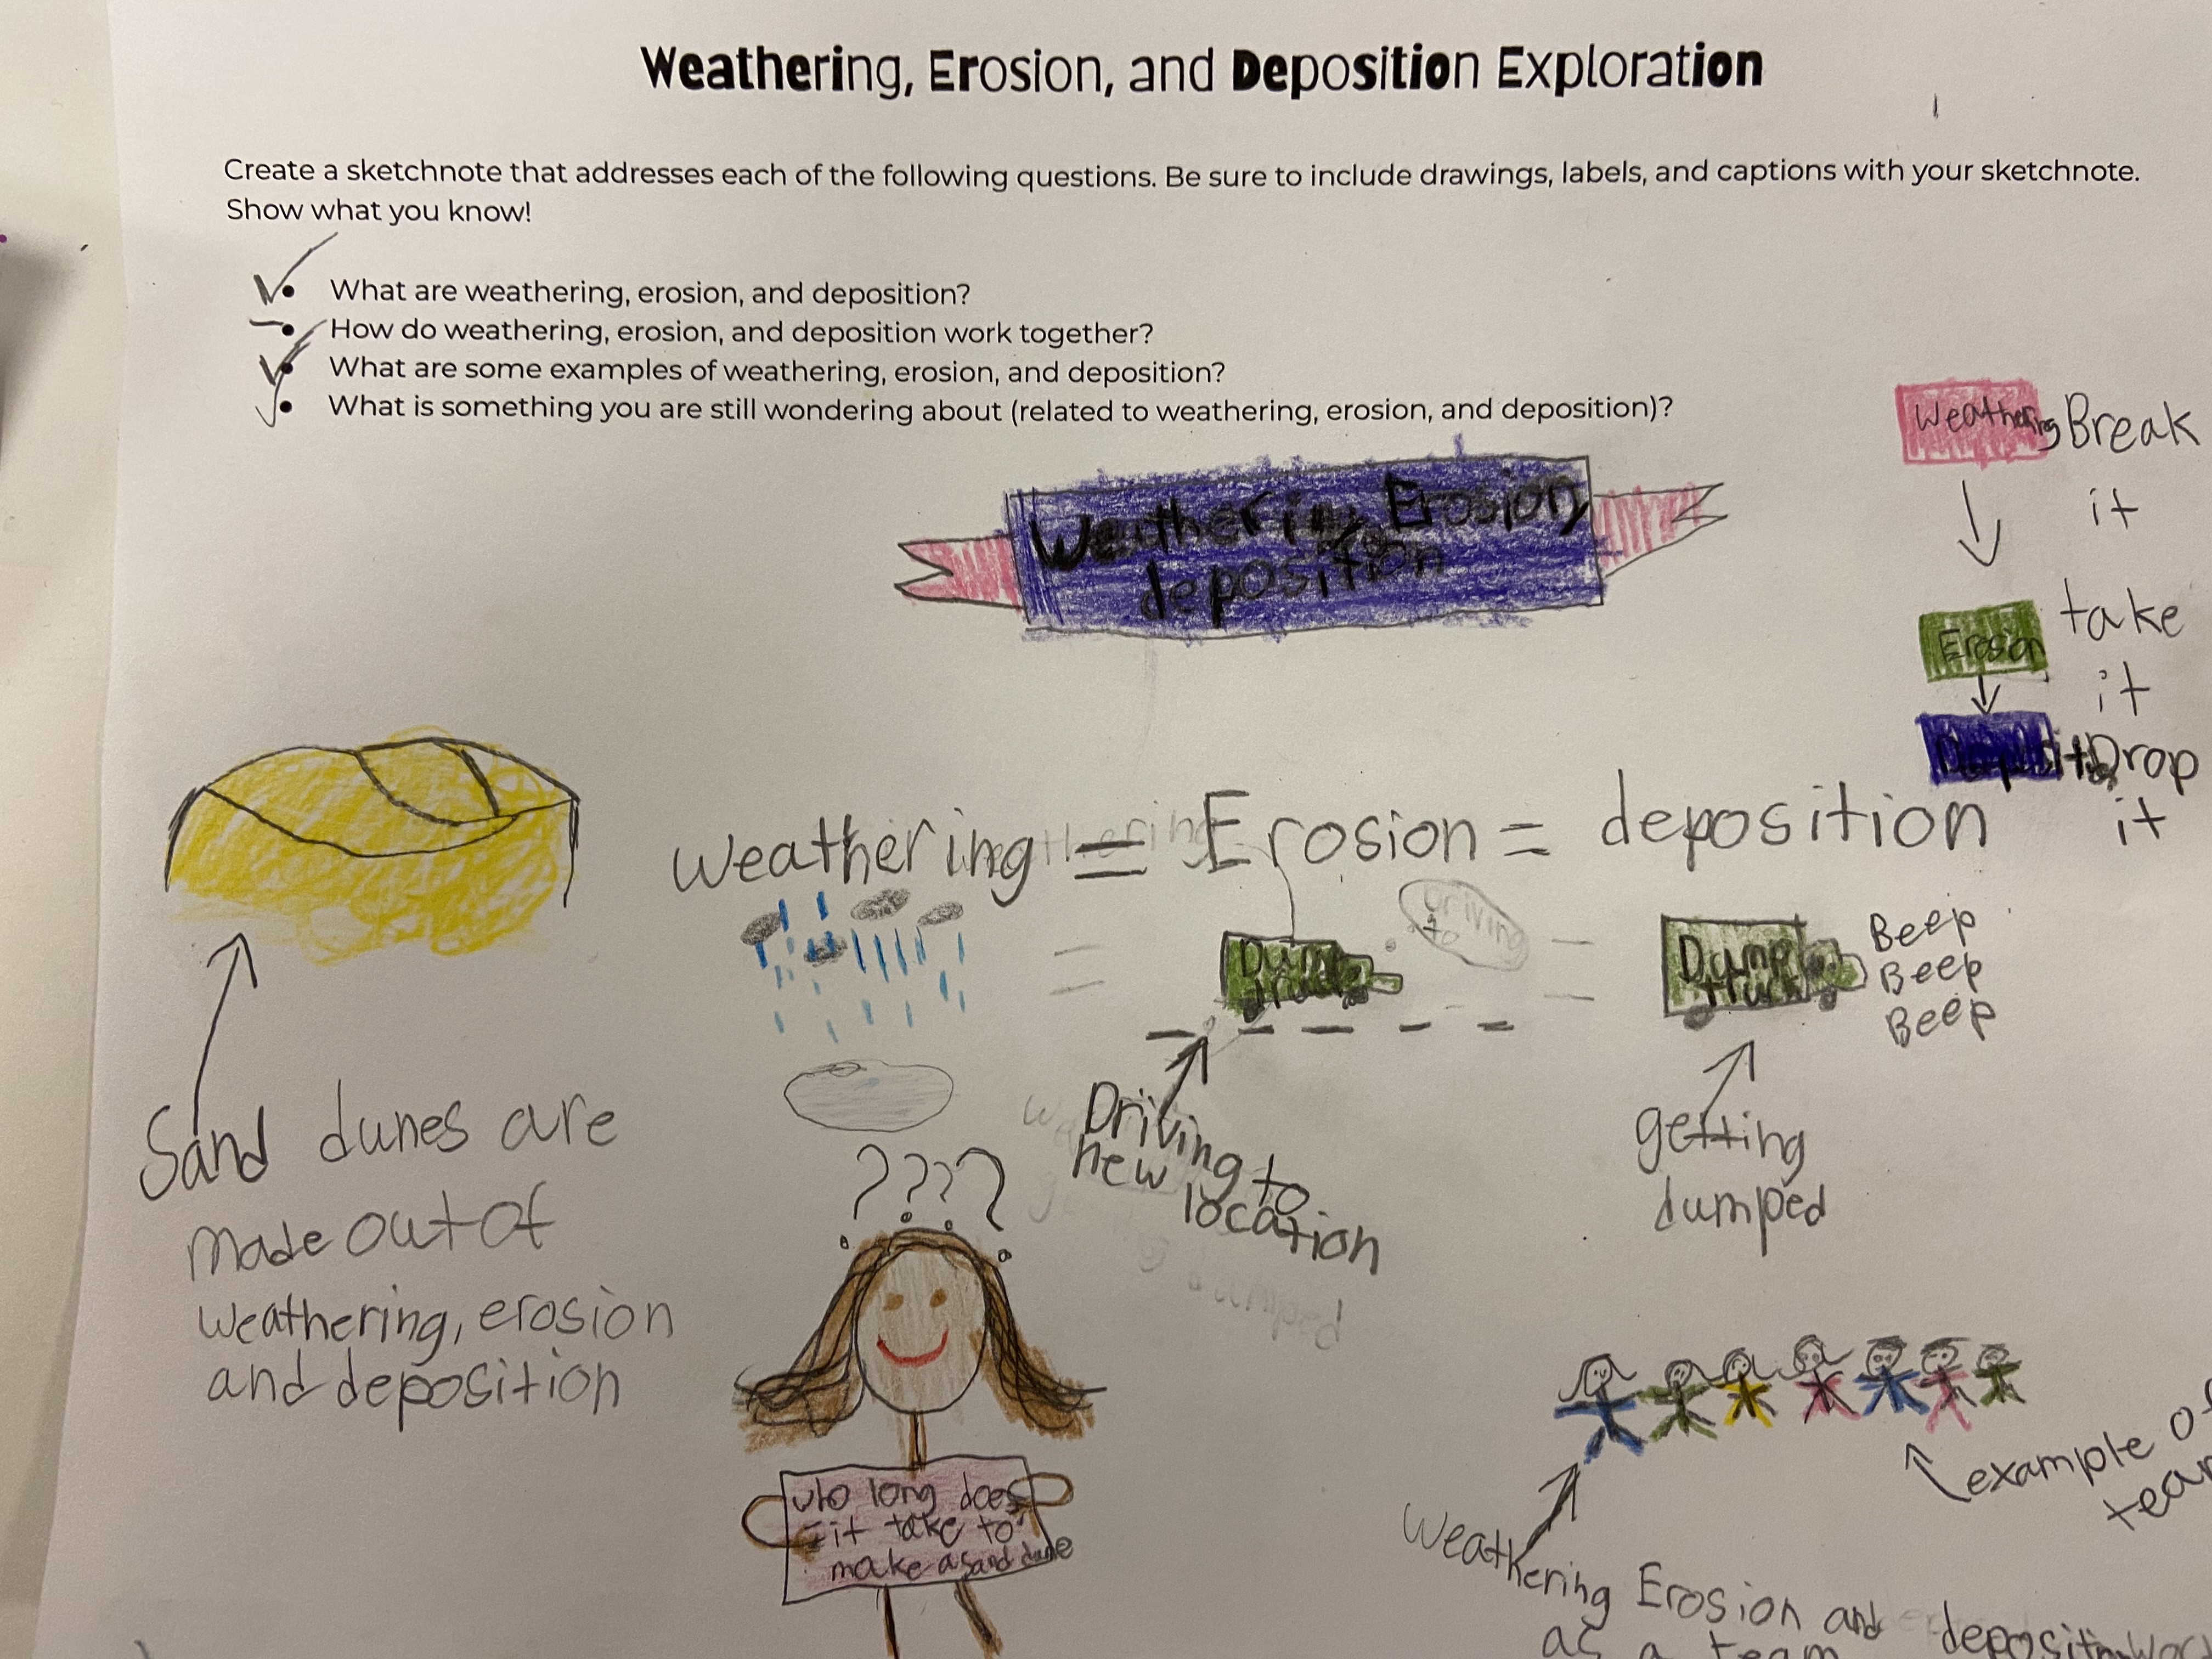 Weathering, Erosion, and Deposition Exploration
Create a sketchnote that addresses each of the following questions. Be sure to include drawings, labels, and captions with your sketchnote.
Show what you know!
• What are weathering, erosion, and deposition?
• How do weathering, erosion, and deposition work together?
• What are some examples of weathering, erosion, and deposition?
• What is something you are still wondering about (related to weathering, erosion, and deposition)?
Weathering, Erosion
deposition
Weathering Break
it
Erosion take
it
Drop
it
weathering = Erosion = deposition
Dump
truck
Driving to
new location
Dump
truck
Beep
Beep
Beep
getting
dumped
Sand dunes are
made out of
weathering, erosion
and deposition
????
long does
it take to
make a sand dune
example of
Weathering Erosion and deposition
as a team